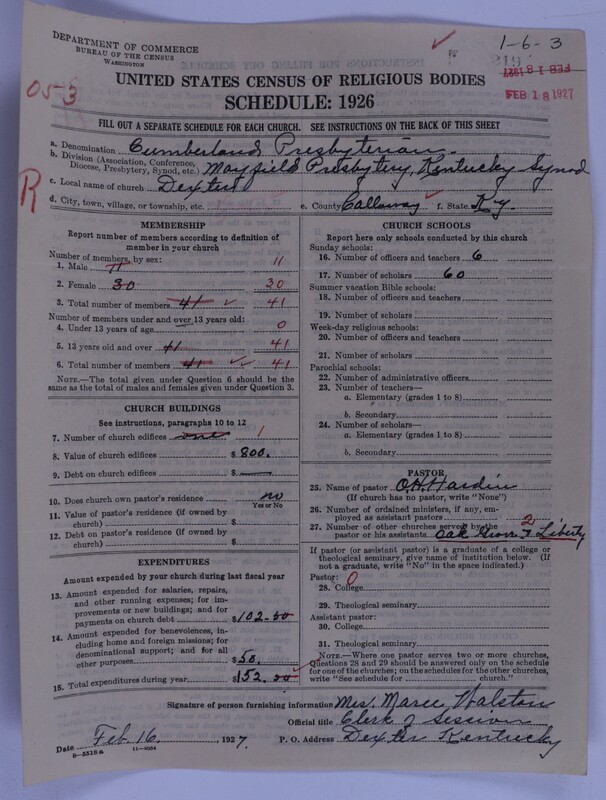 DEPARTMENT OF COMMERCE
BUREAU OF THE CENSUS
WASHINGTON
1-6-3
FEB 18 1927
FEB 18 1927
05-3
R
UNITED STATES CENSUS OF RELIGIOUS BODIES
SCHEDULE: 1926
FILL OUT A SEPARATE SCHEDULE FOR EACH CHURCH. SEE INSTRUCTIONS ON THE BACK OF THIS SHEET
a. Denomination Cumberland Presbyterian
b. Division (Association, Conference, Diocese, Presbytery, Synod, etc.) Mayfield Presbytery, Kentucky Synod
c. Local name of church Dexter
d. City, town, village, or township, etc. e. County Calloway f. State Ky.
MEMBERSHIP
Report number of members according to definition of
member in your church
Number of members, by sex:
1. Male 11 11
2. Female 30 30
3. Total number of members 41 41
Number of members under and over 13 years old:
4. Under 13 years of age 0
5. 13 years old and over 41 41
6. Total number of members 41 41
NOTE.—The total given under Question 6 should be
same as the total of males and females given under Question 3.
CHURCH BUILDINGS
See instructions, paragraphs 10 to 12
7. Number of church edifices one 1
8. Value of church edifices $ 800.
9. Debt on church edifices $
10. Does church own pastor's residence no
Yes or No
11. Value of pastor's residence (if owned by
church) $
12. Debt on pastor's residence (if owned by
church) $
EXPENDITURES
Amount expended by your church during last fiscal year
13. Amount expended for salaries, repairs,
and other running expenses; for im-
provements or new buildings; and for
payments on church debt $102.50
14. Amount expended for benevolences, in-
cluding home and foreign missions; for
denominational support; and for all
other purposes $50.
15. Total expenditures during year $152.50
CHURCH SCHOOLS
Report here only schools conducted by this church
Sunday schools:
16. Number of officers and teachers 6
17. Number of scholars 60
Summer vacation Bible schools:
18. Number of officers and teachers
19. Number of scholars
Week-day religious schools:
20. Number of officers and teachers
21. Number of scholars
Parochial schools:
22. Number of administrative officers
23. Number of teachers—
a. Elementary (grades 1 to 8)
b. Secondary
24. Number of scholars—
a. Elementary (grades 1 to 8)
b. Secondary
PASTOR
25. Name of pastor O.H. Hardin
(If church has no pastor, write "None")
26. Number of ordained ministers, if any, em-
ployed as assistant pastors
27. Number of other churches served by the 2
pastor or his assistants Oak Grove & Liberty
If pastor (or assistant pastor) is a graduate of a college or
theological seminary, give name of institution below. (If
not a graduate, write "No" in the space indicated.)
Pastor: 0
28. College
29. Theological seminary
Assistant pastor:
30. College
31. Theological seminary
NOTE.—Where one pastor serves two or more churches,
Questions 28 and 29 should be answered only on the schedule
for one of the churches; on the schedule for the other churches,
write "See schedule for church."
Signature of person furnishing information Mrs. Maree Walston
Official title Clerk of Session
Date Feb. 16, 1927. P. O. Address Dexter Kentucky
8-5518a 11-9054